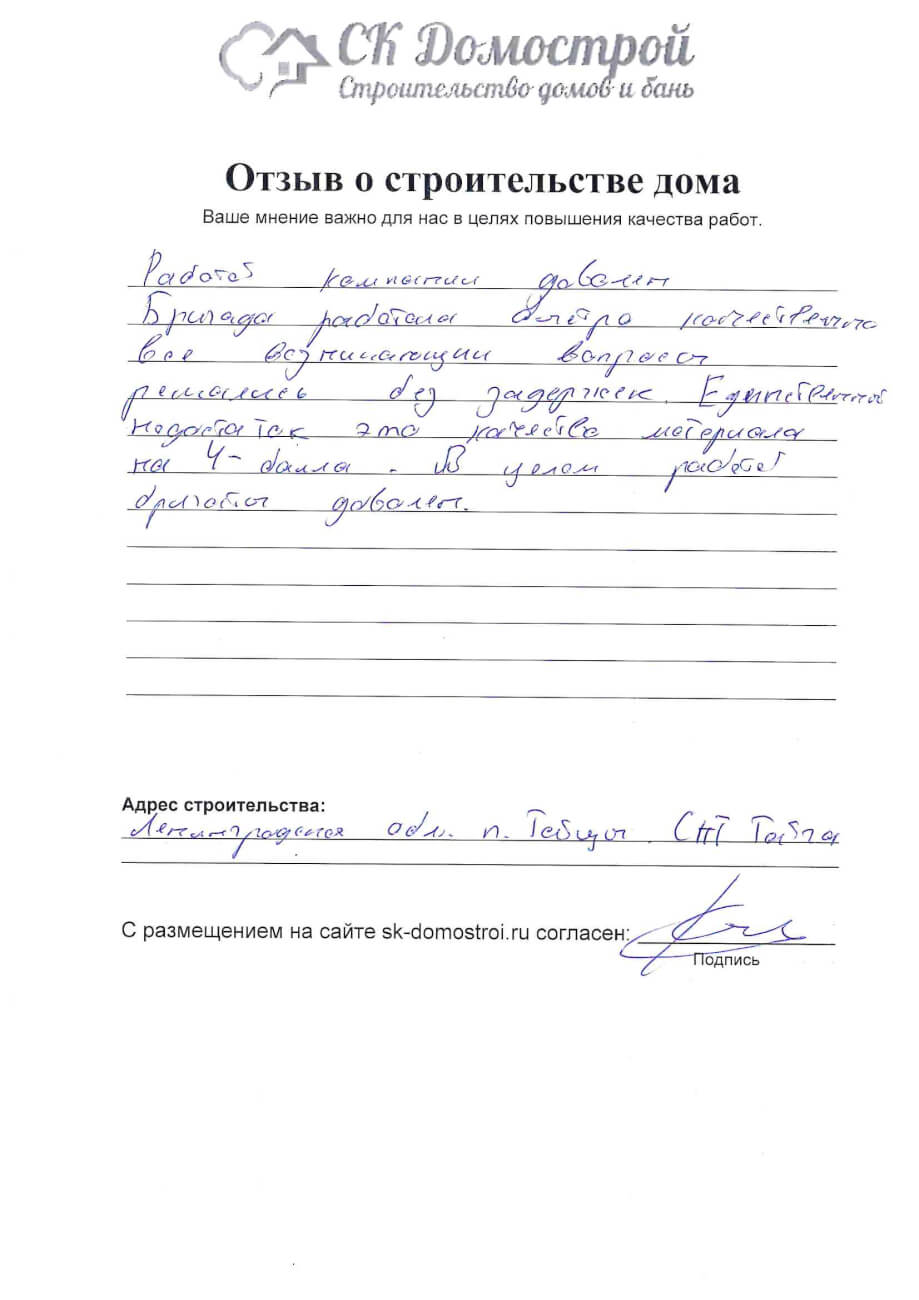 СК Домострой
Строительство домов и бань
Отзыв о строительстве дома
Ваше мнение важно для нас в целях повышения качества работ.
Работой компании доволен
Бригада работала быстро качественно
все возникающии вопросы
решались без задержек. Единственный
недостаток это качество материала
на 4- балла. В целом работой
бригаты доволен.
Адрес строительства:
Ленинградская обл. п. Тайцы. СНТ Тайга
С размещением на сайте sk-domostroi.ru согласен:
Подпись